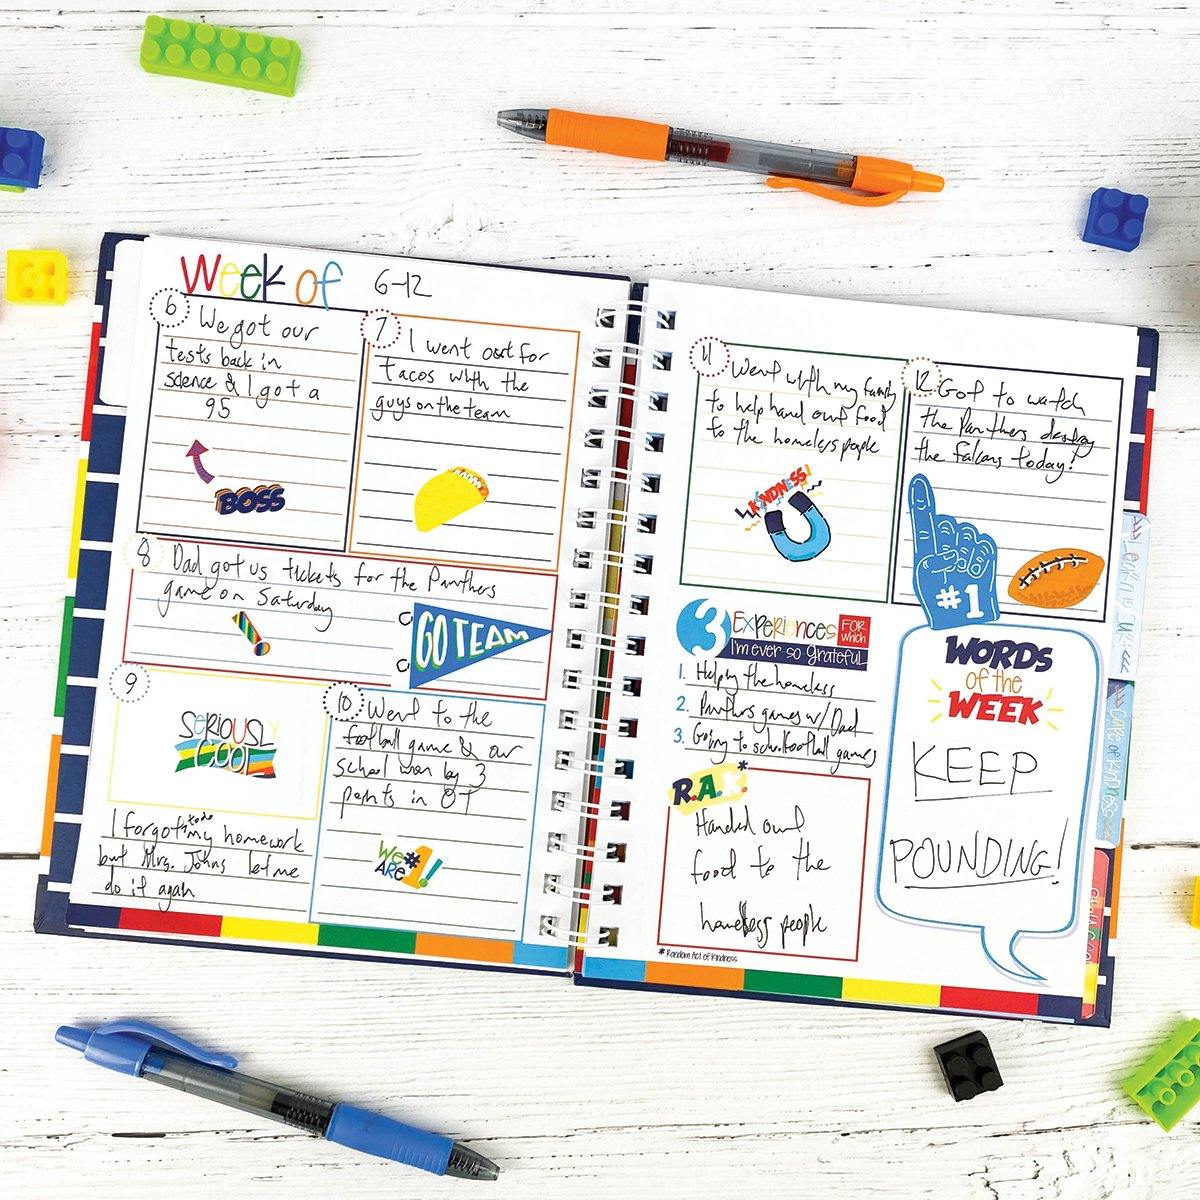 Week of 6-12
6
We got our
tests back in
science & I got a
95
BOSS
7
I went out for
Tacos with the
guys on the team
8
Dad got us tickets for the Panthers
game on Saturday
GO TEAM
9
SERIOUSLY
COOL
I forgot to do my homework
but Mrs. Johns let me
do it again
10
Went to the
football game & our
school won by 3
points in OT
We
ARE #1!
11
Went with my family
to help hand out food
to the homeless people
KINDNESS!
12
Got to watch
the Panthers destroy
the Falcons today!
#1
3 EXPERIENCES FOR which
I'm ever so grateful
1. Helping the homeless
2. Panthers games w/ Dad
3. Going to school football games
R.A.K.*
Handed out
food to the
homeless people
* Random Act of Kindness
WORDS
of the
WEEK
KEEP
POUNDING!